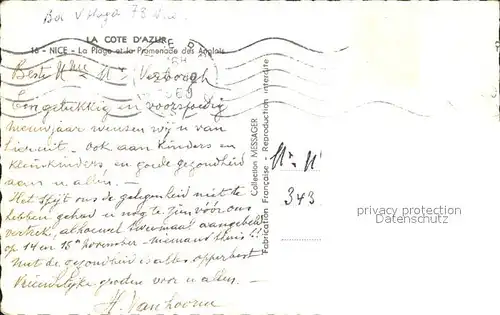 LA COTE D'AZUR
16 - NICE - La Plage et la Promenade des Anglais
Beste
Een gelukkig en voorspoedig
nieuwjaar wensen wij u van
hieruit - ook aan kinders en
kleinkinders en goede gezondheid
aan u allen. -
Het spijt ons de gelegenheid niet te
hebben gehad u nog te zien vóór ons
vertrek, alhoewel tweemaal aangebeld
op 14 en 15 november - niemand thuis!!
Met de gezondheid is alles opperbest
Vriendelijke groeten voor u allen. -
H. Van Loorne
Collection MESSAGER
Fabrication Française - Reproduction interdite
343
privacy protection
Datenschutz